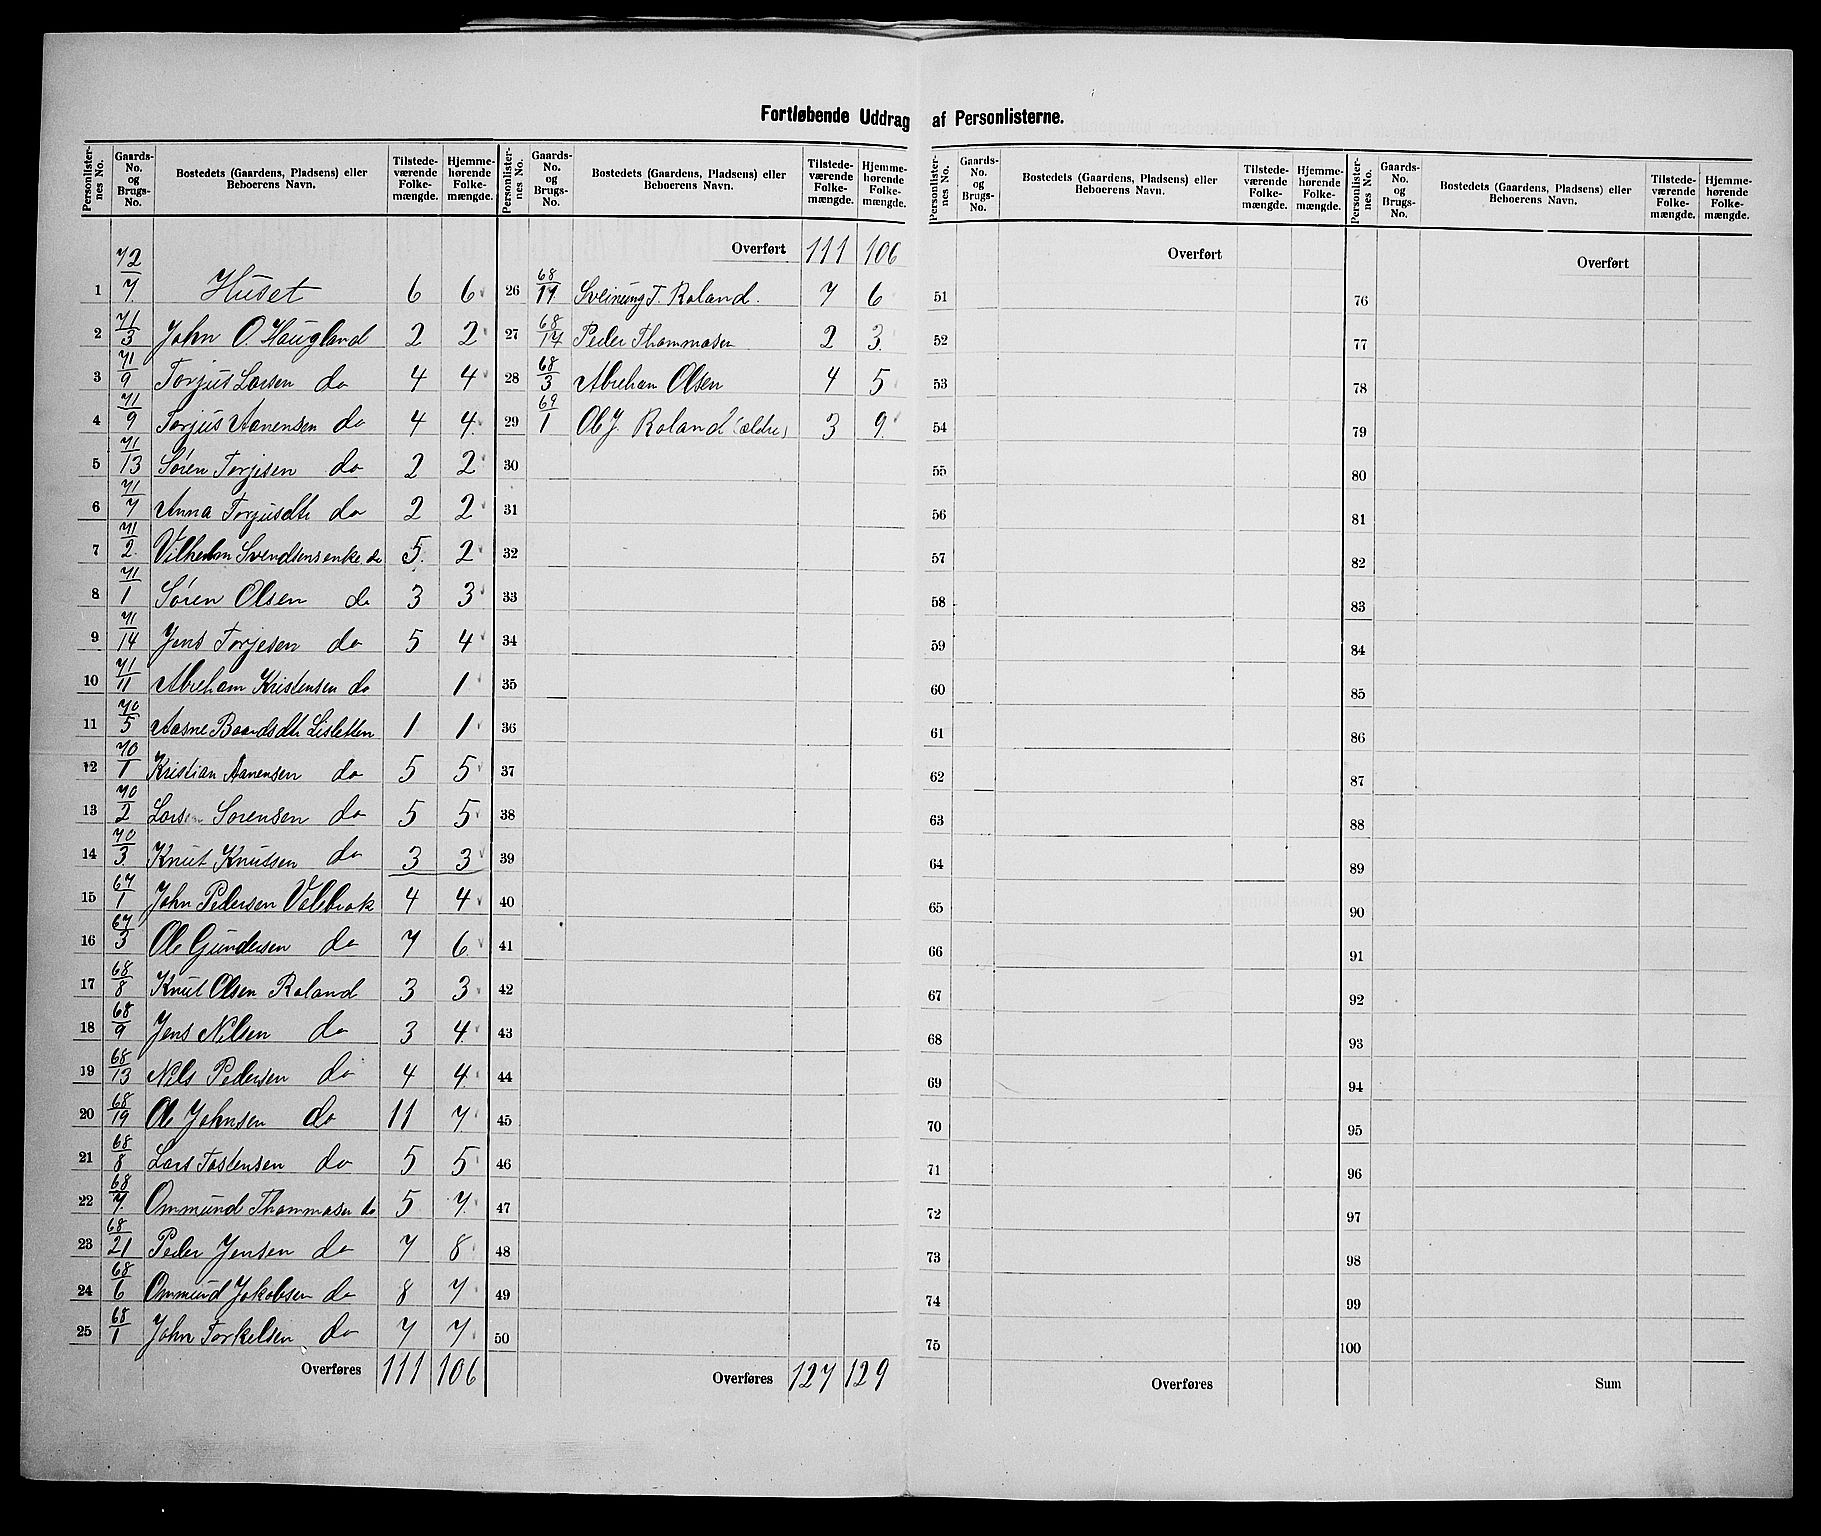 Fortløbende Uddrag af Personlisterne.
Personlister- nes No. | Gaards- No. og Brugs- No. | Bostedets (Gaardens, Pladsens) eller Beboerens Navn. | Tilstede- værende Folke- mængde. | Hjemme- hørende Folke- mængde.
1 72/7 Huset 6 6
2 71/3 John O Haugland 2 2
3 71/9 Torjus Larsen do 4 4
4 71/9 Torjus Aanensen do 4 4
5 71/13 Søren Torjesen do 2 2
6 71/7 Anna Torjusdtr do 2 2
7 71/2 Vilhelm Svendsens enke do 5 2
8 71/1 Søren Olsen do 3 3
9 71/14 Jens Torjesen do 5 4
10 71/11 Abreham Kristensen do 1
11 70/5 Aasne Baardsdtr Lisletten 1 1
12 70/1 Kristian Aanensen do 5 5
13 70/2 Lars Sørensen do 5 5
14 70/3 Knut Knutsen do 3 3
15 67/1 John Pedersen Valebrok 4 4
16 67/3 Ole Gundersen do 7 6
17 68/8 Knut Olsen Roland 3 3
18 68/9 Jens Nilsen do 3 4
19 68/13 Nils Pedersen do 4 4
20 68/19 Ole Johnsen do 11 7
21 68/8 Lars Tostensen do 5 5
22 68/7 Ommund Thommasen do 5 7
23 68/21 Peder Jensen do 7 8
24 68/6 Ommund Jakobsen do 8 7
25 68/1 John Torkelsen do 7 7
Overføres 111 106
Personlister- nes No. | Gaards- No. og Brugs- No. | Bostedets (Gaardens, Pladsens) eller Beboerens Navn. | Tilstede- værende Folke- mængde. | Hjemme- hørende Folke- mængde.
Overført 111 106
26 68/19 Sveinung T. Roland. 7 6
27 68/17 Peder Thommasen 2 3
28 68/3 Abreham Olsen 4 5
29 69/1 Ole J. Roland (ældre) 3 9
30
31
32
33
34
35
36
37
38
39
40
41
42
43
44
45
46
47
48
49
50
Overføres 127 129
Personlister- nes No. | Gaards- No. og Brugs- No. | Bostedets (Gaardens, Pladsens) eller Beboerens Navn. | Tilstede- værende Folke- mængde. | Hjemme- hørende Folke- mængde.
Overført
51
52
53
54
55
56
57
58
59
60
61
62
63
64
65
66
67
68
69
70
71
72
73
74
75
Overføres
Personlister- nes No. | Gaards- No. og Brugs- No. | Bostedets (Gaardens, Pladsens) eller Beboerens Navn. | Tilstede- værende Folke- mængde. | Hjemme- hørende Folke- mængde.
Overført
76
77
78
79
80
81
82
83
84
85
86
87
88
89
90
91
92
93
94
95
96
97
98
99
100
Sum